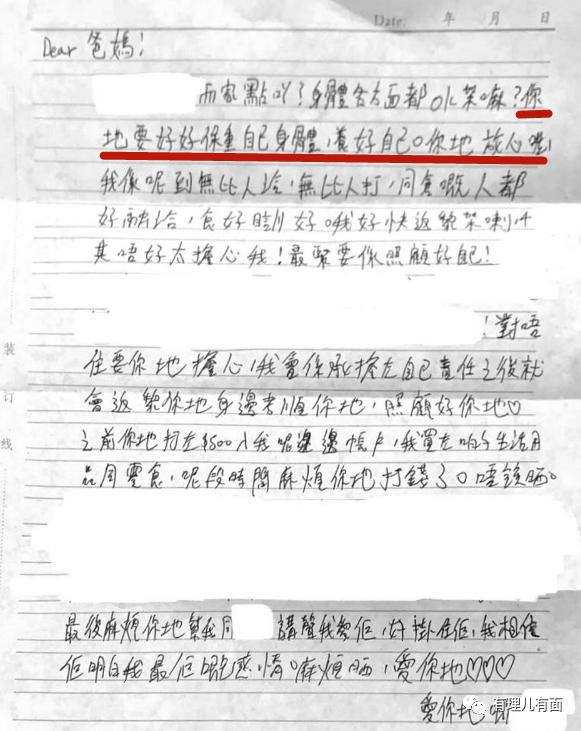 Date: 年 月 日
Dear 爸媽!
而家點吖?身體各方面都ok架嘛?你
地要好好保重自己身體,養好自己。你地放心啦,
我係呢到無比人蝦,無比人打,同倉嘅人都
好融洽,食好瞓好。我好快返黎架喇!
其唔好太擔心我!最緊要你照顧好自己!
!對唔
住要你地擔心,我會係承擔左自己責任之後就
會返黎你地身邊孝順你地,照顧好你地♡
之前你地打左$500入我呢邊邊帳戶,我買左啲生活用
品同零食,呢段時間麻煩你地打錢了。唔該晒。
最後麻煩你地幫我同 講聲我愛佢,好掛住佢,我相信
佢明白我最佢嘅感情。麻煩晒,愛你地♡♡♡
愛你地
装
订
线
有理儿有面